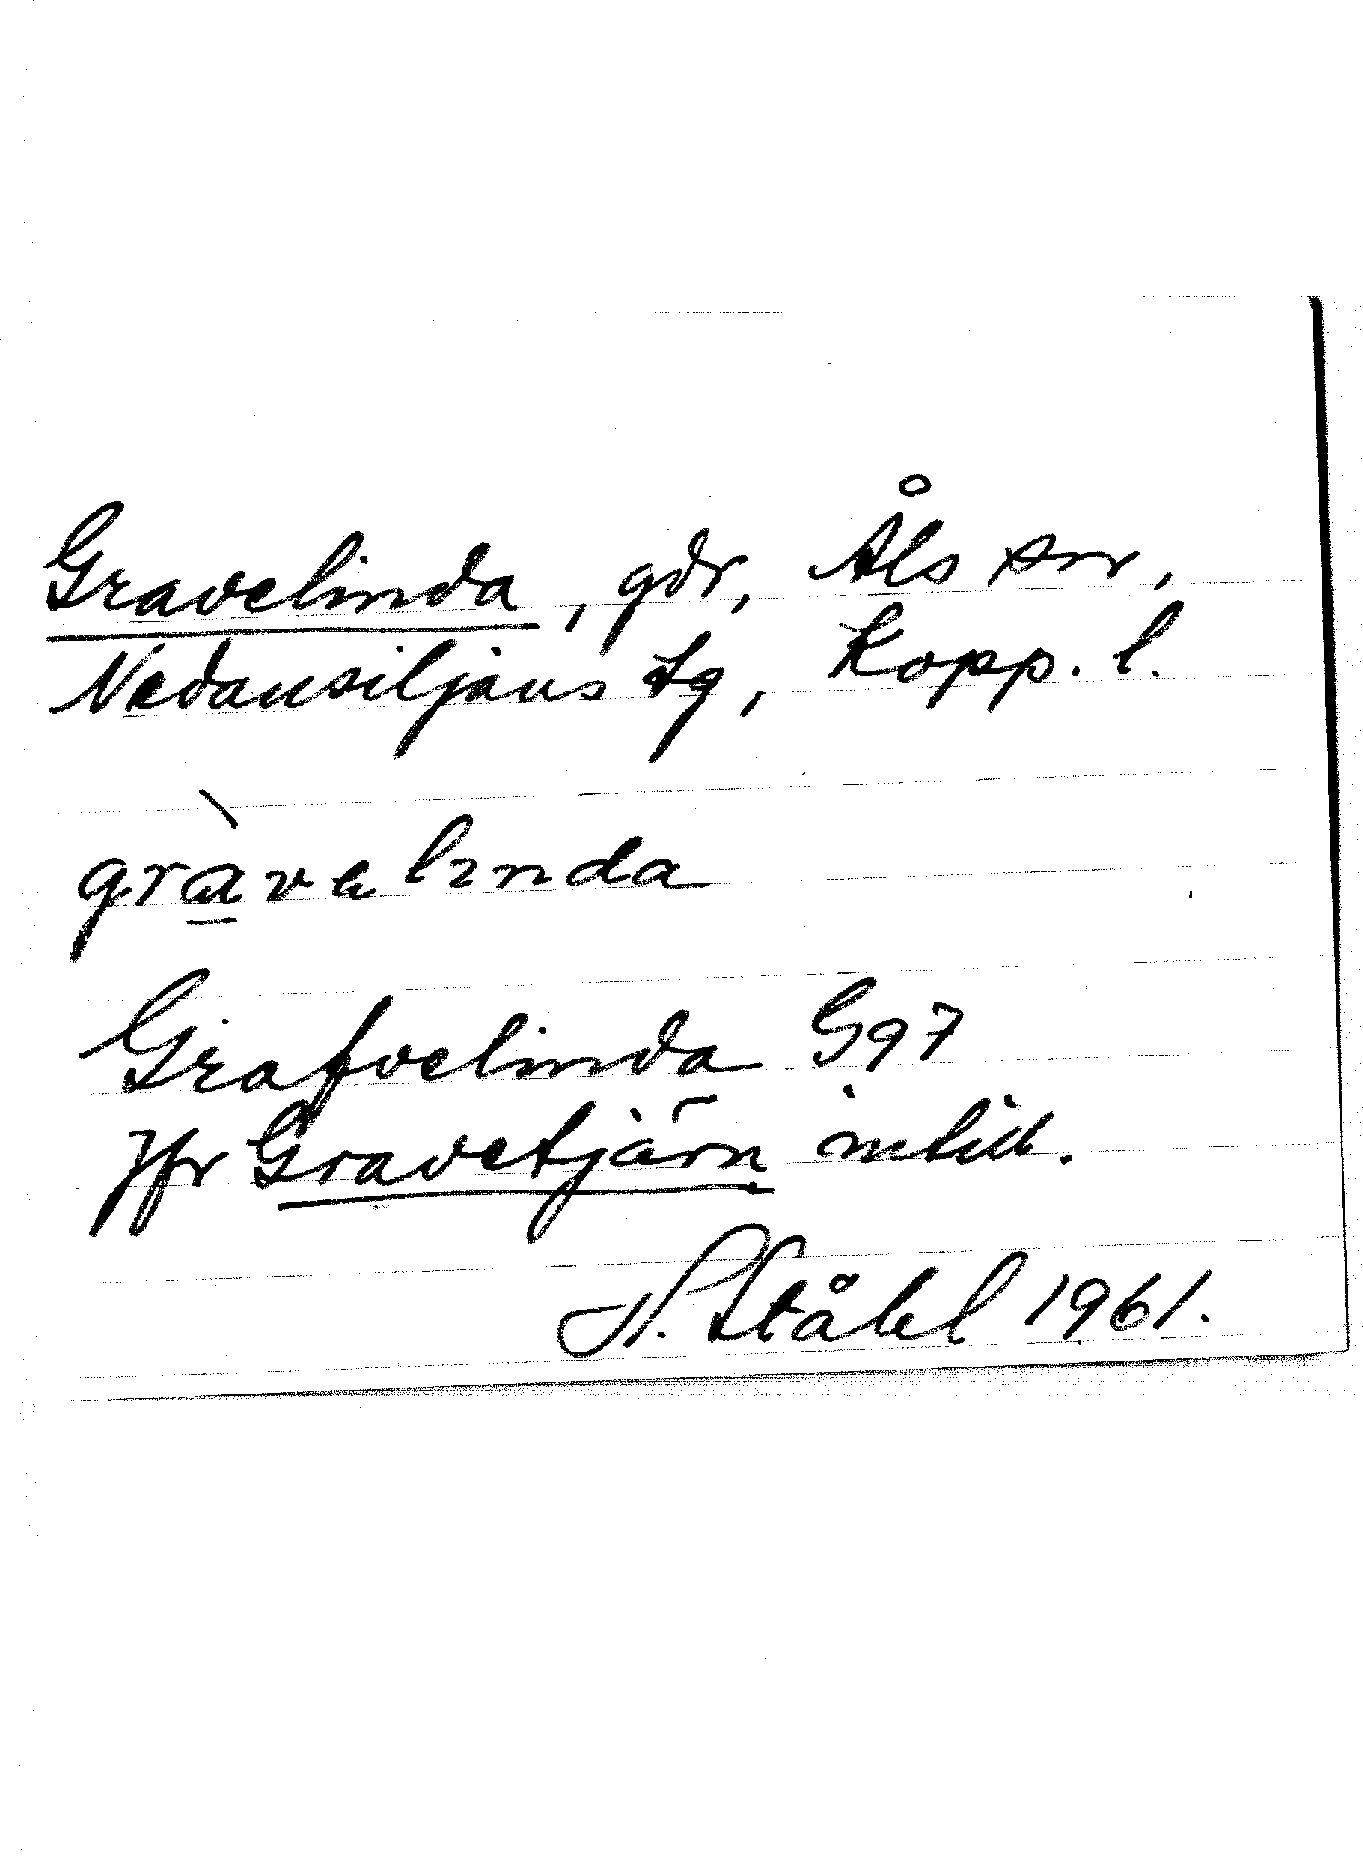 Gravelinda, gdr, Åls sn,
Nedansiljans tg, Kopp. l.
gràvəlɪnda
Grafvelinda G97
Jfr Gravetjärn intill.
N. Ståhl 1961.